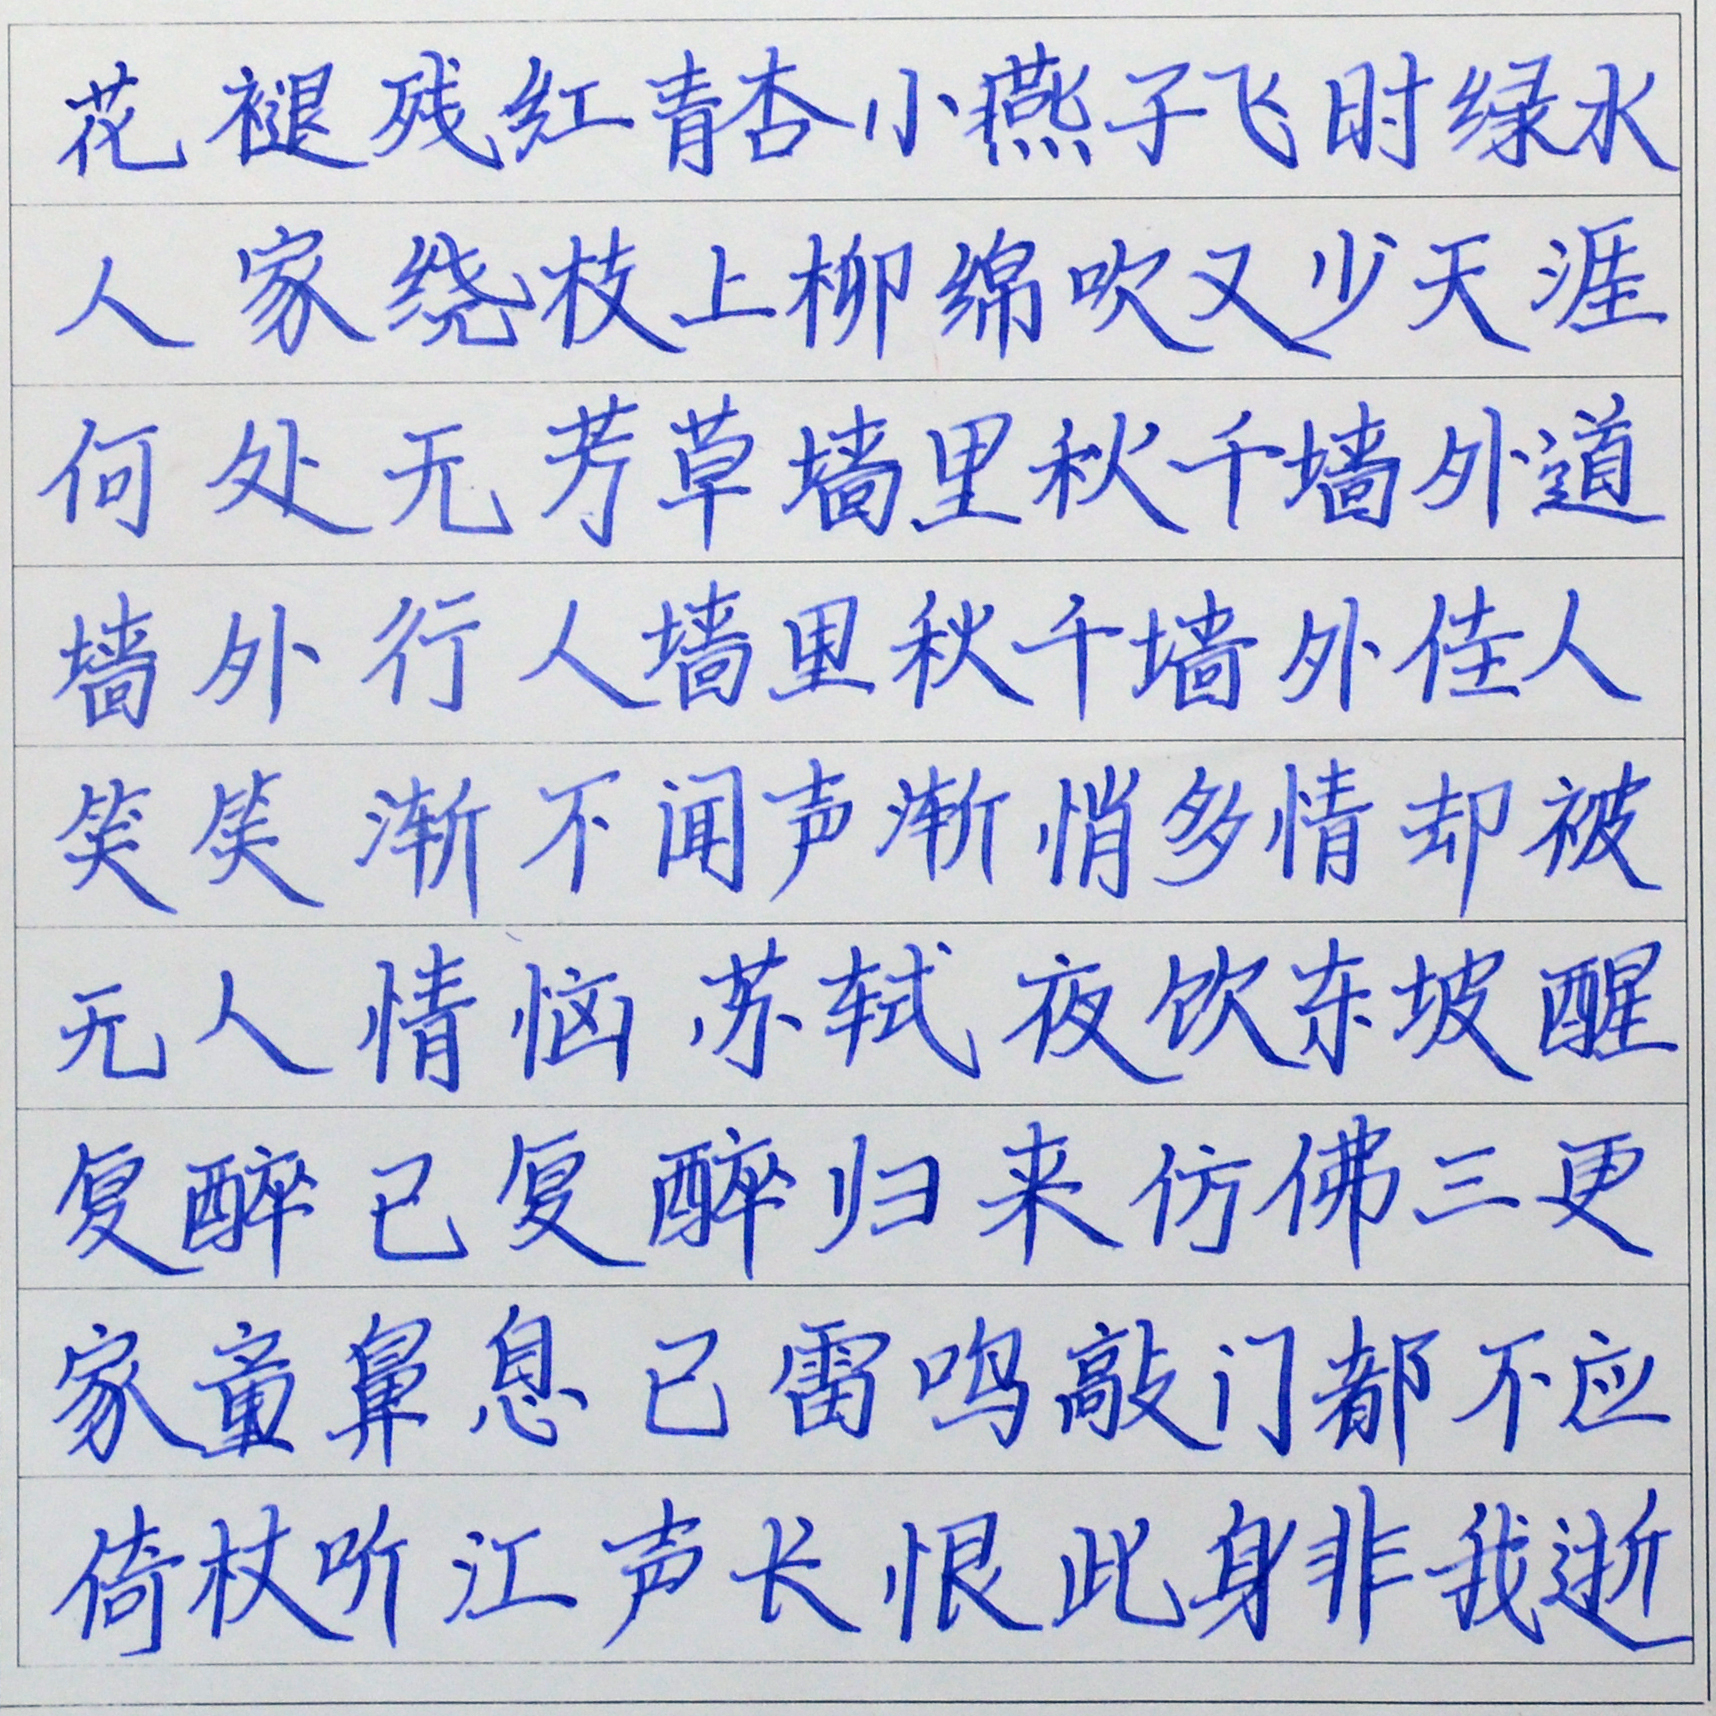 花褪残红青杏小燕子飞时绿水
人家绕枝上柳绵吹又少天涯
何处无芳草墙里秋千墙外道
墙外行人墙里秋千墙外佳人
笑笑渐不闻声渐悄多情却被
无人情恼苏轼夜饮东坡醒
复醉已复醉归来仿佛三更
家童鼻息已雷鸣敲门都不应
倚杖听江声长恨此身非我逝